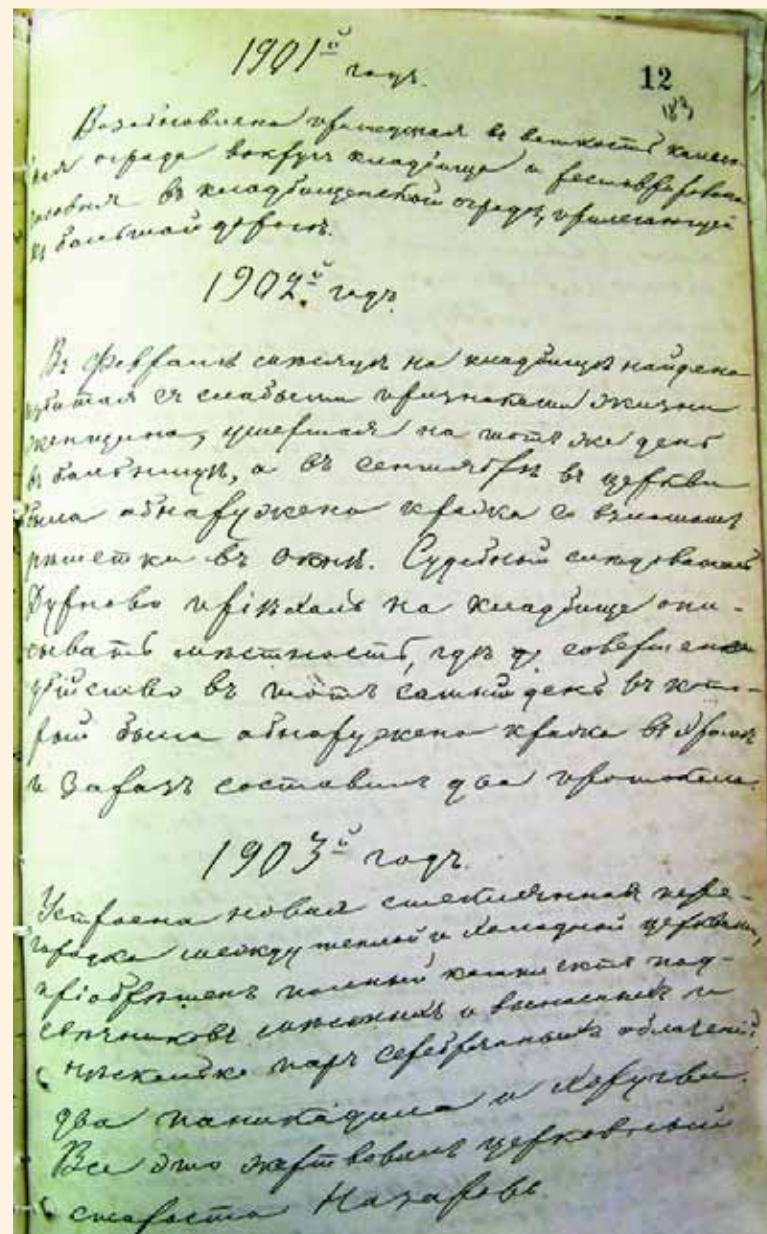 1901й годъ.
12
183
Возобновлена пришедшая въ ветхость камен-
ная ограда вокругъ кладбища и реставрирована
часовня въ кладбищенской оградѣ, прилегающей
къ большой дорогѣ.
1902й годъ.
Въ Февралѣ мѣсяцѣ на кладбищѣ найдена
убитая съ слабыми признаками жизни
женщина, умершая на тотъ же день
въ больницѣ, а въ сентябрѣ въ церкви
была обнаружена кража со взломомъ
рѣшетки въ окнѣ. Судебный слѣдователь
Дурново пріѣхалъ на кладбище опи-
сывать мѣстность, гдѣ совершено
убійство въ тотъ самый день въ кото-
рый была обнаружена кража въ храмѣ
и заразъ составилъ два протокола.
1903й годъ.
Устроена новая стеклянная пере-
городка между теплой и холодной церквами,
пріобрѣтенъ полный комплектъ под-
свѣчниковъ мѣстныхъ и выносныхъ и
нѣсколько паръ серебряныхъ облаченій,
два паникадила и хоругви.
Все это жертвовалъ церковный
староста Назаровъ.